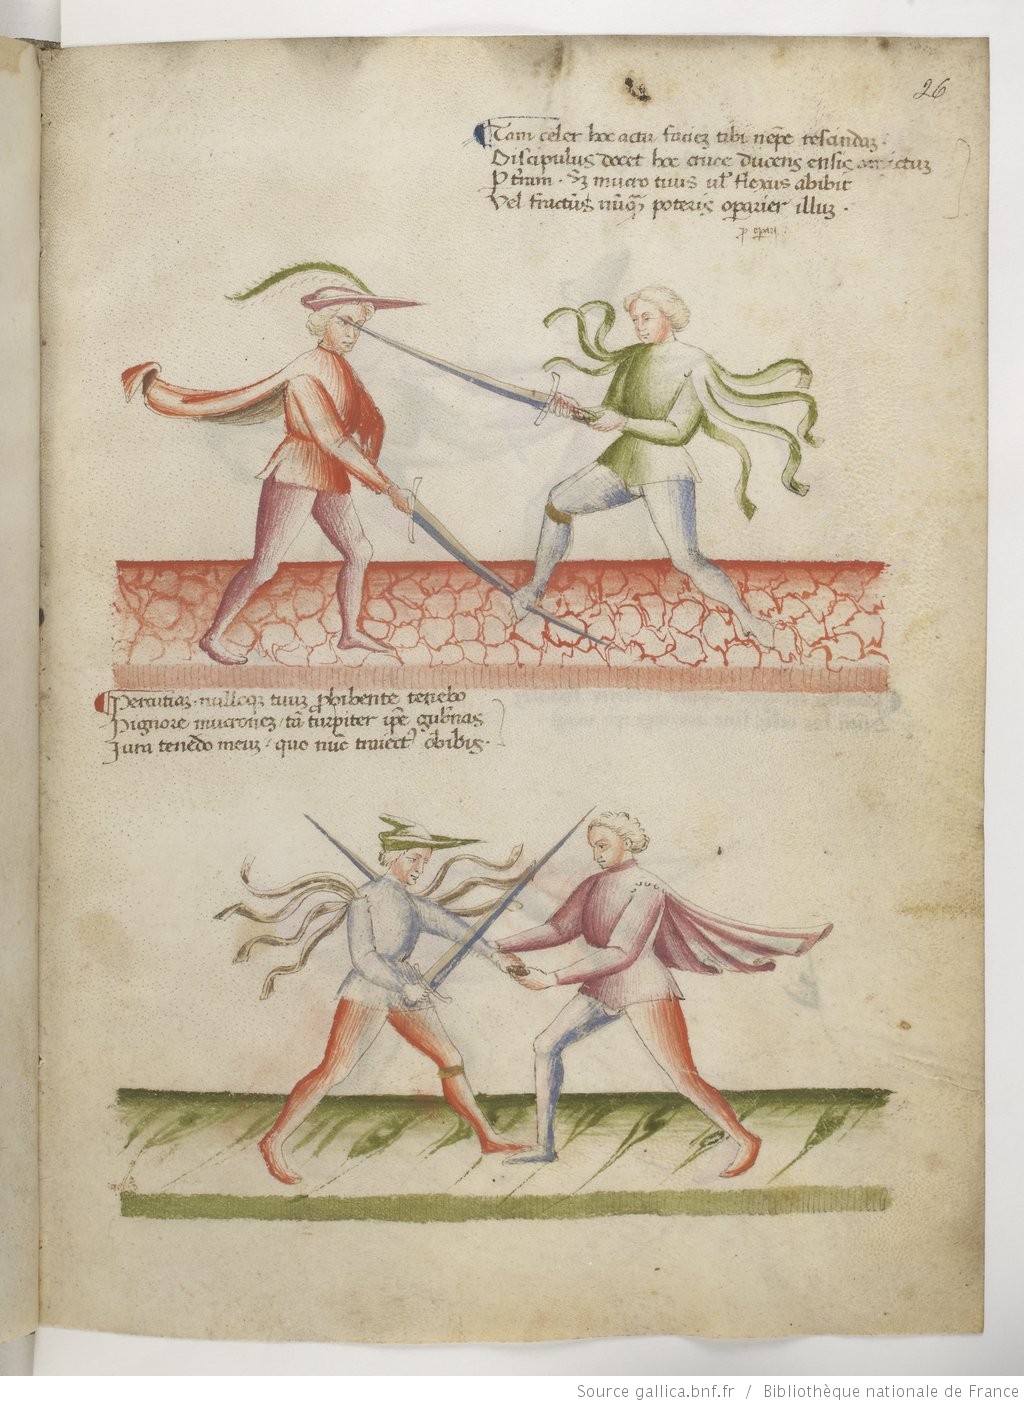 26
Tam celer hoc actu faciem tibi nēpe rescindam.
Discipulus docet hoc cruce ducens ensis
P t̄ram. Sꝫ mucro tuus ul' flexus abibit
Vel fractus nūqꝫ poteris oparier illum.
p opari.
Percutiam nulloqꝫ tuum ꝓhibente tenebo
Pignore mucronem tā turpiter ip̄e gub̄nas
Iura tenēdo meum. quo nūc traiectꝰ obibis.
Source gallica.bnf.fr / Bibliothèque nationale de France